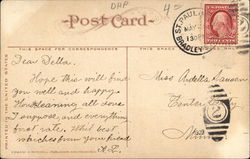 DAP
4¢
Post Card
ST. PAUL
MAY
130P
BRADLEY
THIS SPACE FOR CORRESPONDENCE
Dear Della.
Hope this will find
you well and happy.
Housecleaning all done
I suppose, and everything
first rate. With best
wishes from your friend
Miss Ardella Hanson
Center City
Minn
2
PRINTED IN THE UNITED STATES